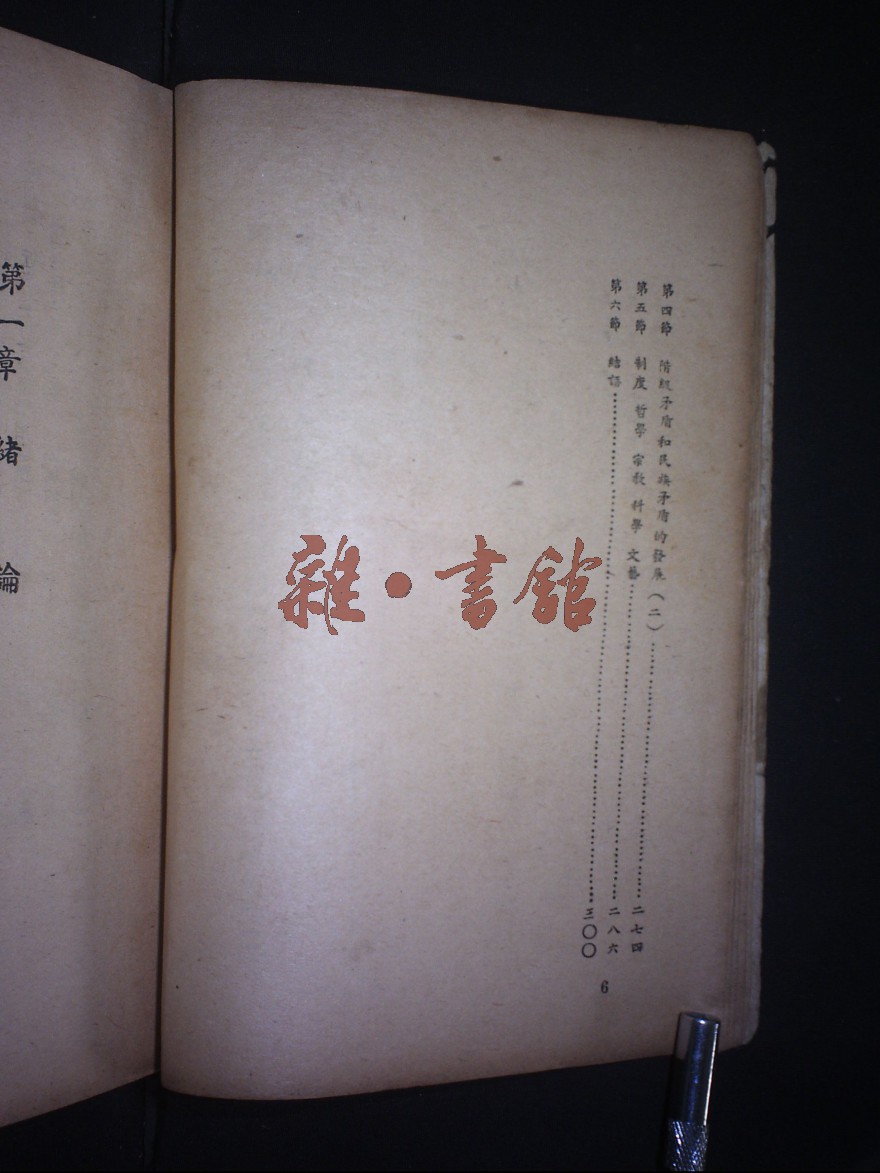 第四節 階級矛盾和民族矛盾的發展（二）……二七四
第五節 制度 哲學 宗教 科學 文藝……二八六
第六節 結語……三〇〇
6
第一章 緒論
雜·書館